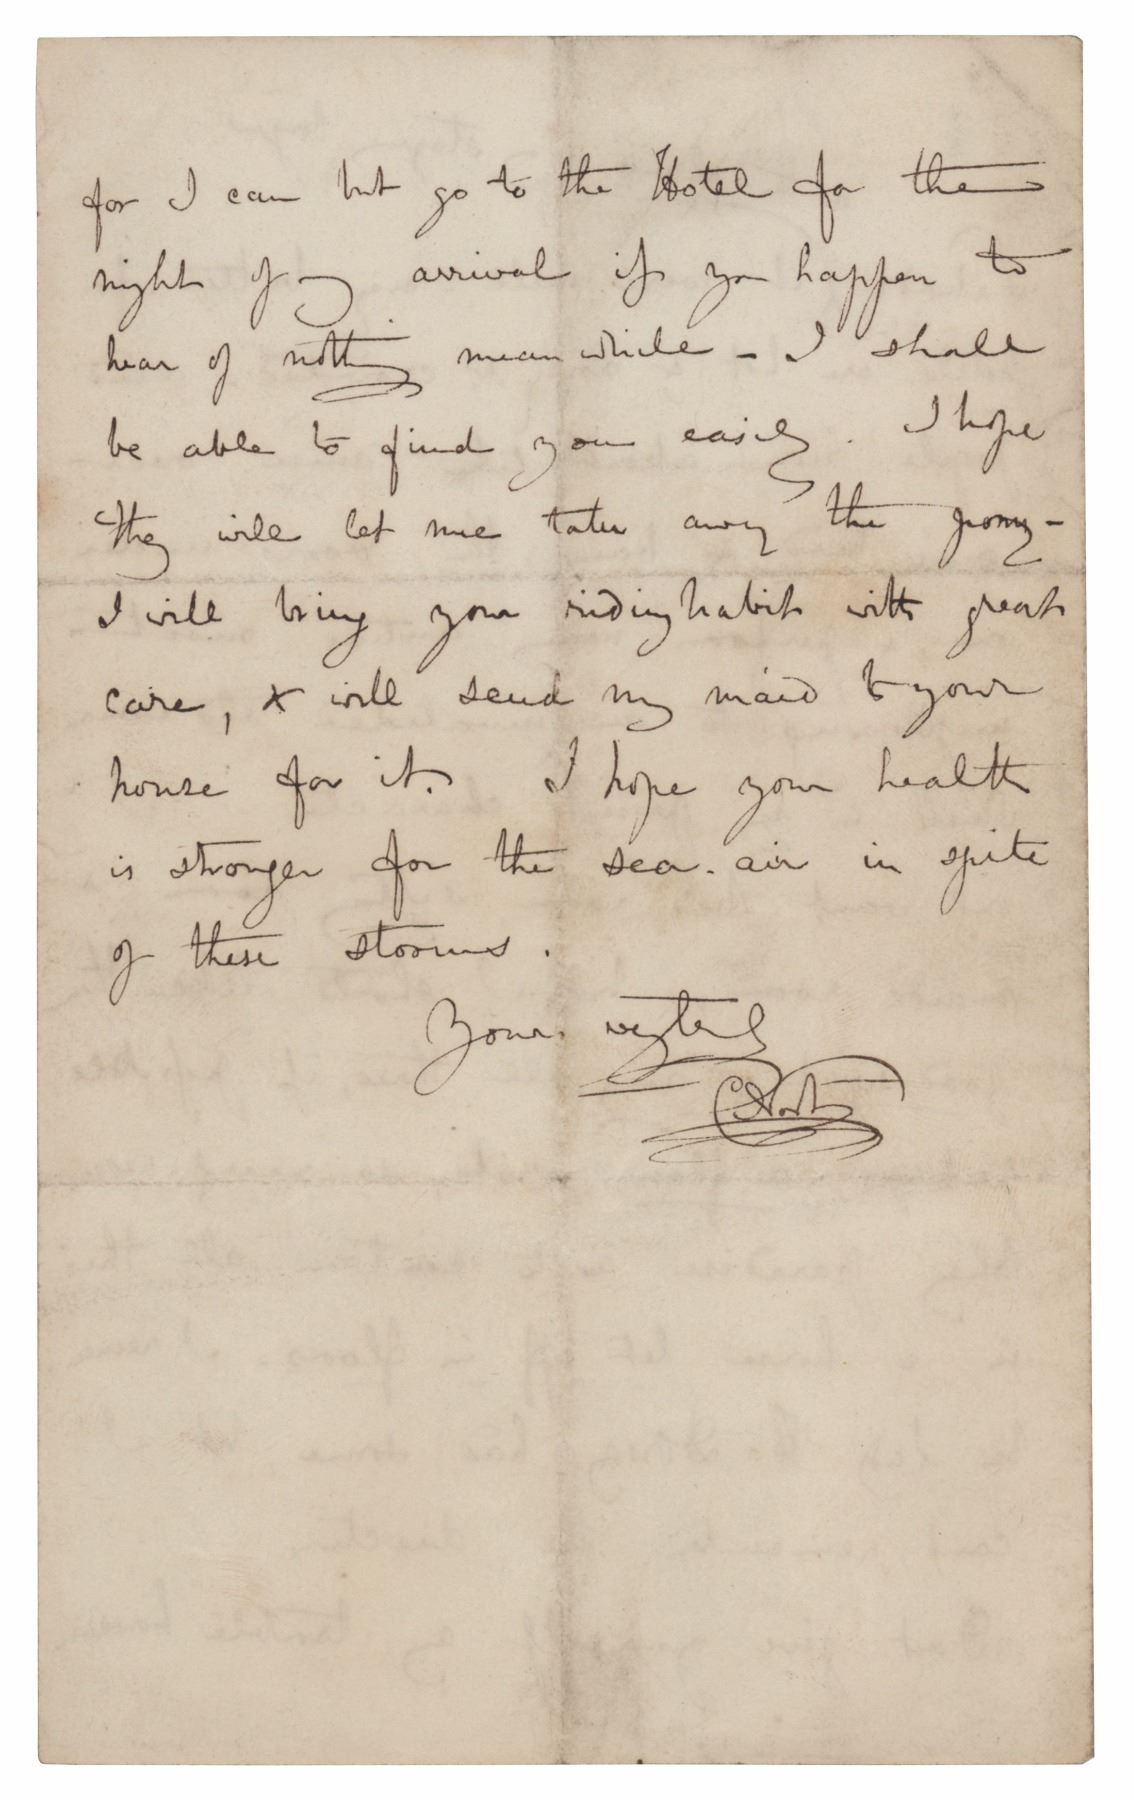 for I can but go to the Hotel for the
night of my arrival if you happen to
hear of nothing meanwhile - I shall
be able to find you easily. I hope
they will let me take away the pony -
I will bring your ridinghabit with great
care, & will send my maid to your
house for it. I hope your health
is stronger for the sea-air in spite
of these storms.
Yours
CNorton